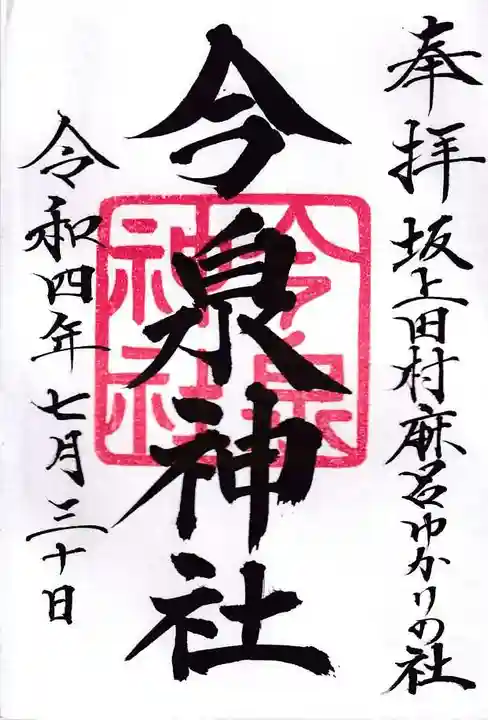 奉拝 坂上田村麻呂ゆかりの社
今泉神社
今泉神社
令和四年七月三十日